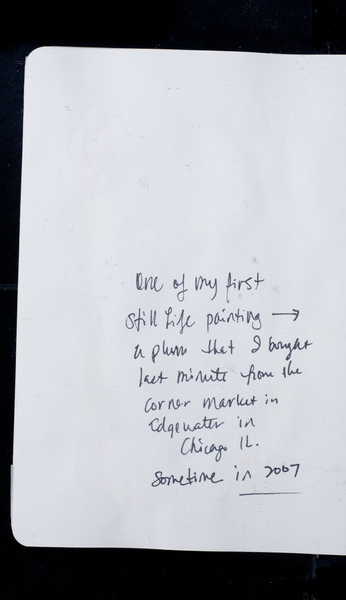 One of my first
Still Life painting →
a plum that I bought
last minute from the
corner market in
Edgewater in
Chicago IL.
Sometime in 2007